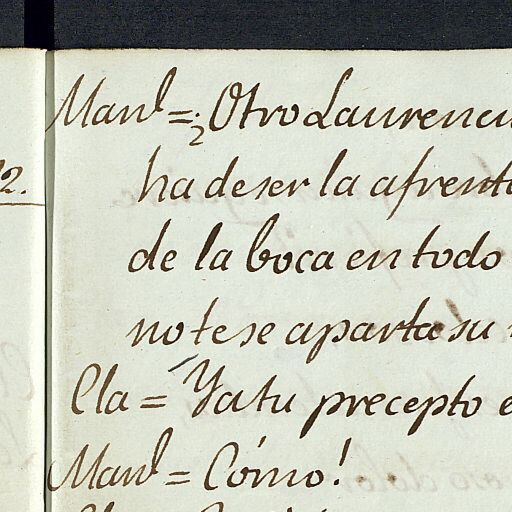 2.
Man.l = ¿Otro Laurenci
ha de ser la afrenta
de la boca en todo
no te se aparta su
Cla = Ya tu precepto e
Man.l = Cómo!